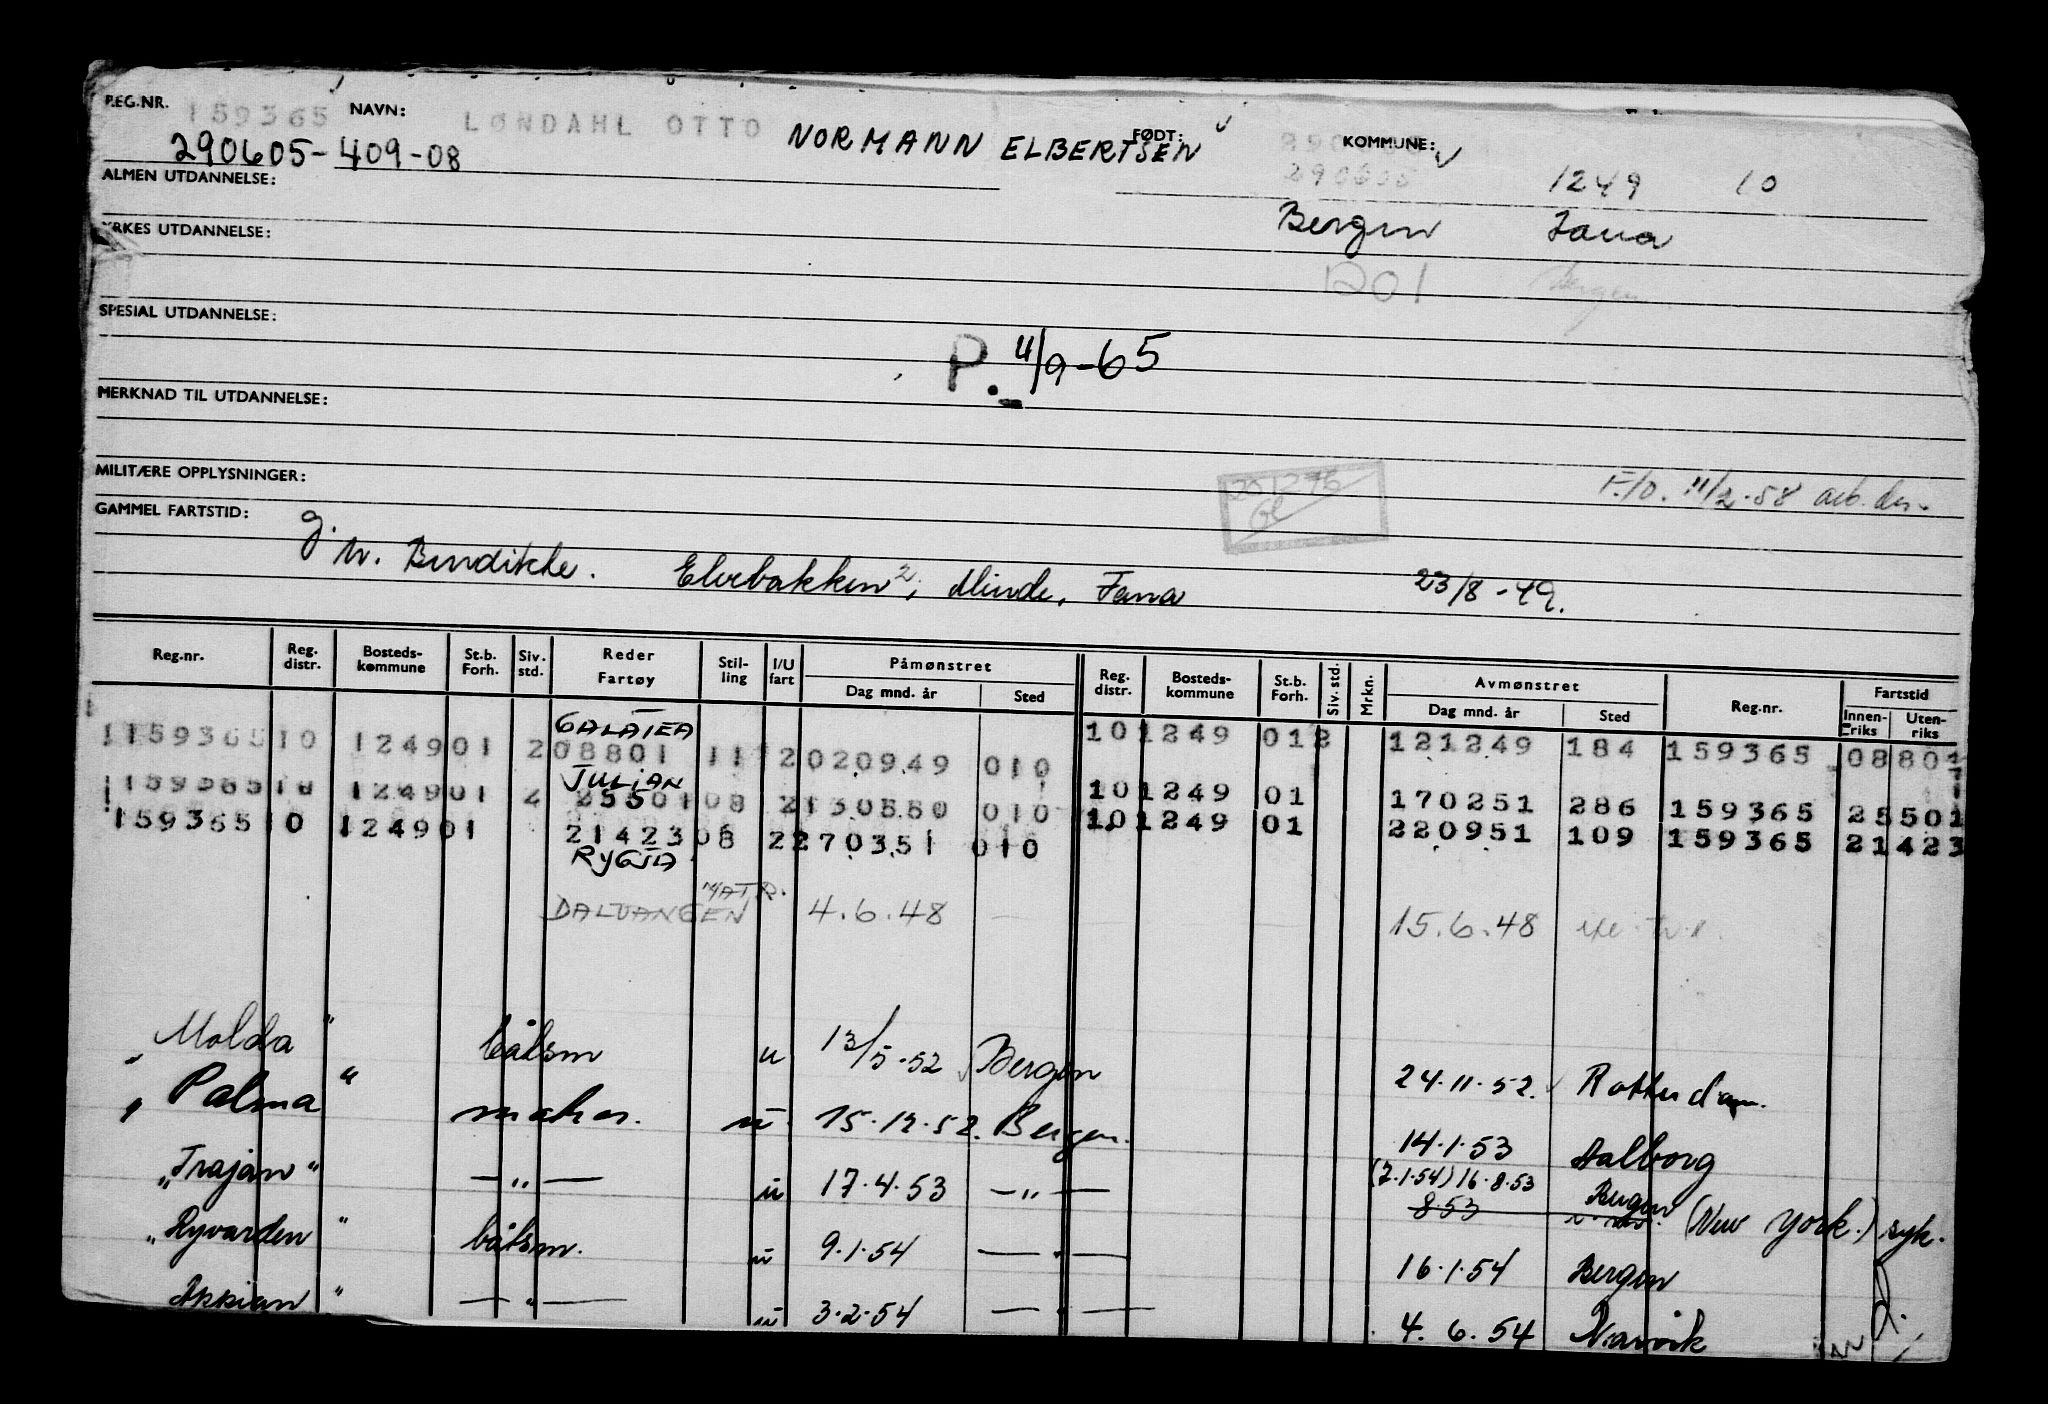 REG.NR. 159365 NAVN: LØNDAHL OTTO NORMANN ELBERTSEN FØDT: 290605 KOMMUNE: 1249 10
290605-409-08
ALMEN UTDANNELSE:
Bergen Fana
YRKES UTDANNELSE:
1201 Bergen
SPESIAL UTDANNELSE:
P. 11/9-65
MERKNAD TIL UTDANNELSE:
MILITÆRE OPPLYSNINGER:
251276
F./O. 11/2.58 arb. des.
GAMMEL FARTSTID:
g. m. Bendikke. Elvebakken 2, Minde, Fana 23/8-49.
Reg.nr. Reg. distr. Bosteds-kommune St.b. Forh. Siv. std. Reder Fartøy Stil-ling I/U fart Påmønstret Dag mnd. år Sted Reg. distr. Bosteds-kommune St.b. Forh. Siv. std. Mrkn. Avmønstret Dag mnd. år Sted Reg.nr. Fartstid Innen-riks Uten-riks
GALATEA
159365 10 1249 01 2 08801 11 2 020949 010 10 1249 01 2 121249 184 159365 08801
JULIAN
159365 10 1249 01 2 25501 08 2 130550 010 10 1249 01 170251 286 159365 25501
159365 10 1249 01 21423 08 2 270351 010 10 1249 01 220951 109 159365 21423
RYGJA
DALVANGEN MATR. 4.6.48 15.6.48
"Molda" båtsm u 13/5.52 Bergen 24.11.52. Rotterdam.
"Palma" u 15.12.52. Bergen. 14.1.53 Aalborg
"Trajan" — " — u 17.4.53 — " — (7.1.54) 16.8.53 Bergen (New York.) syk.
8.53
"Ryvarden" båtsm. u 9.1.54 — " — 16.1.54 Bergen
Appian " — " — u 3.2.54 — " — 4.6.54 Narvik